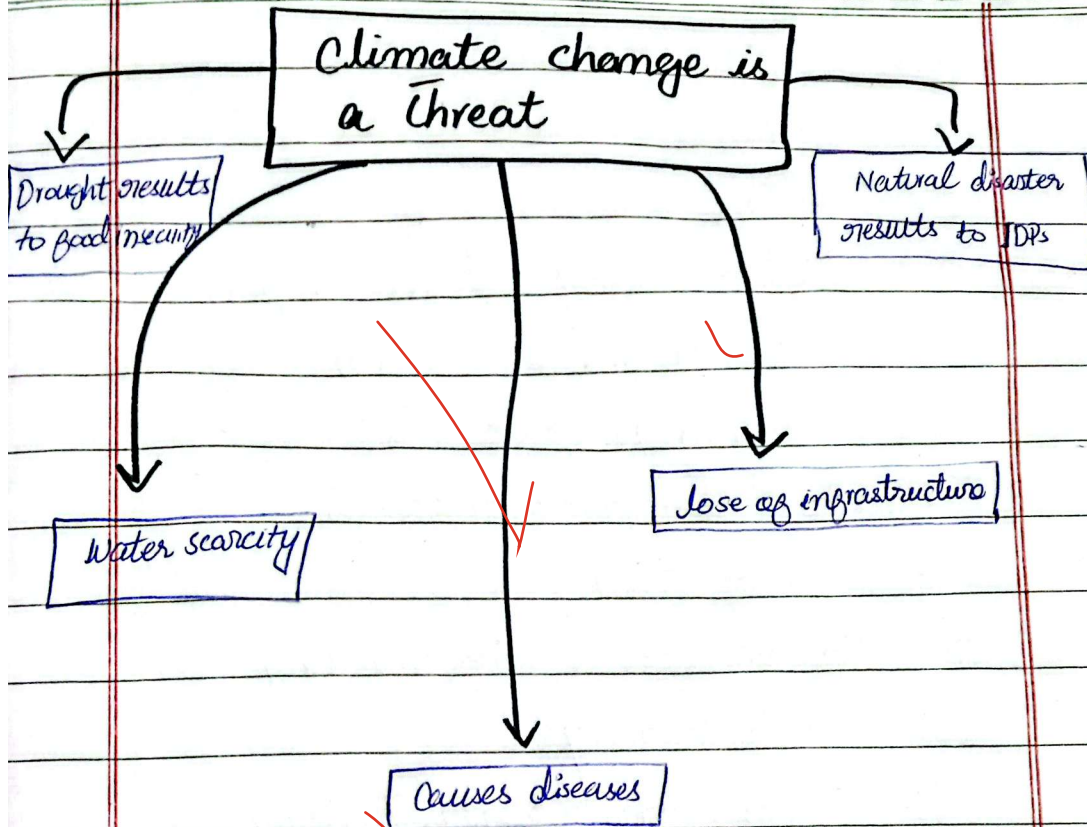 Climate change is
a Threat
Drought results
to food insecurity
Natural disaster
results to IDPs
Water scarcity
lose of infrastructure
Causes diseases